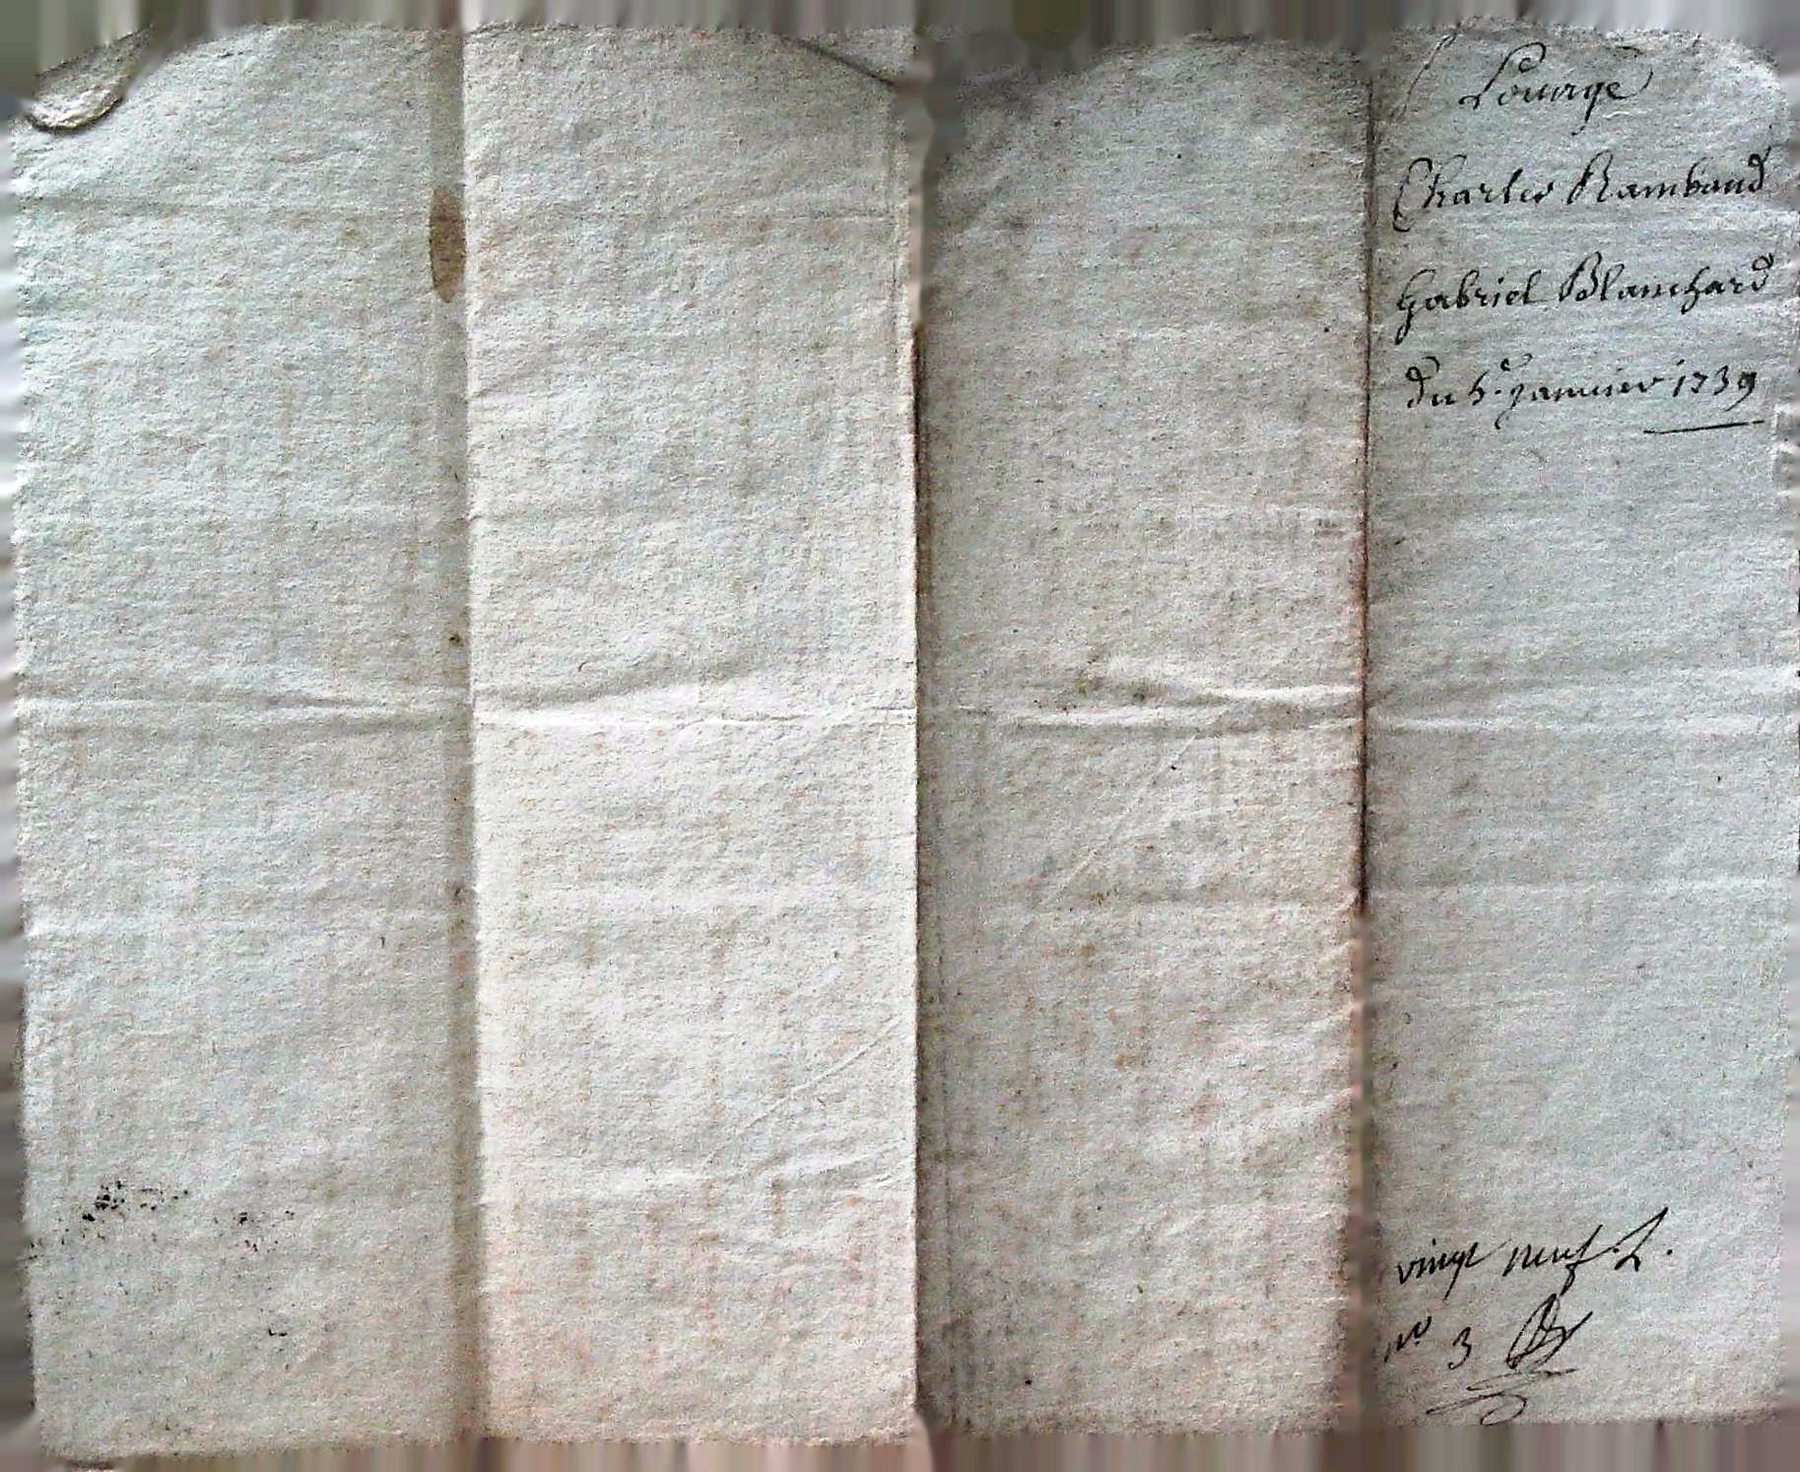 Charles Rambaud
Gabriel Blanchard
du 5.e janvier 1739
vingt neuf L.
No 3